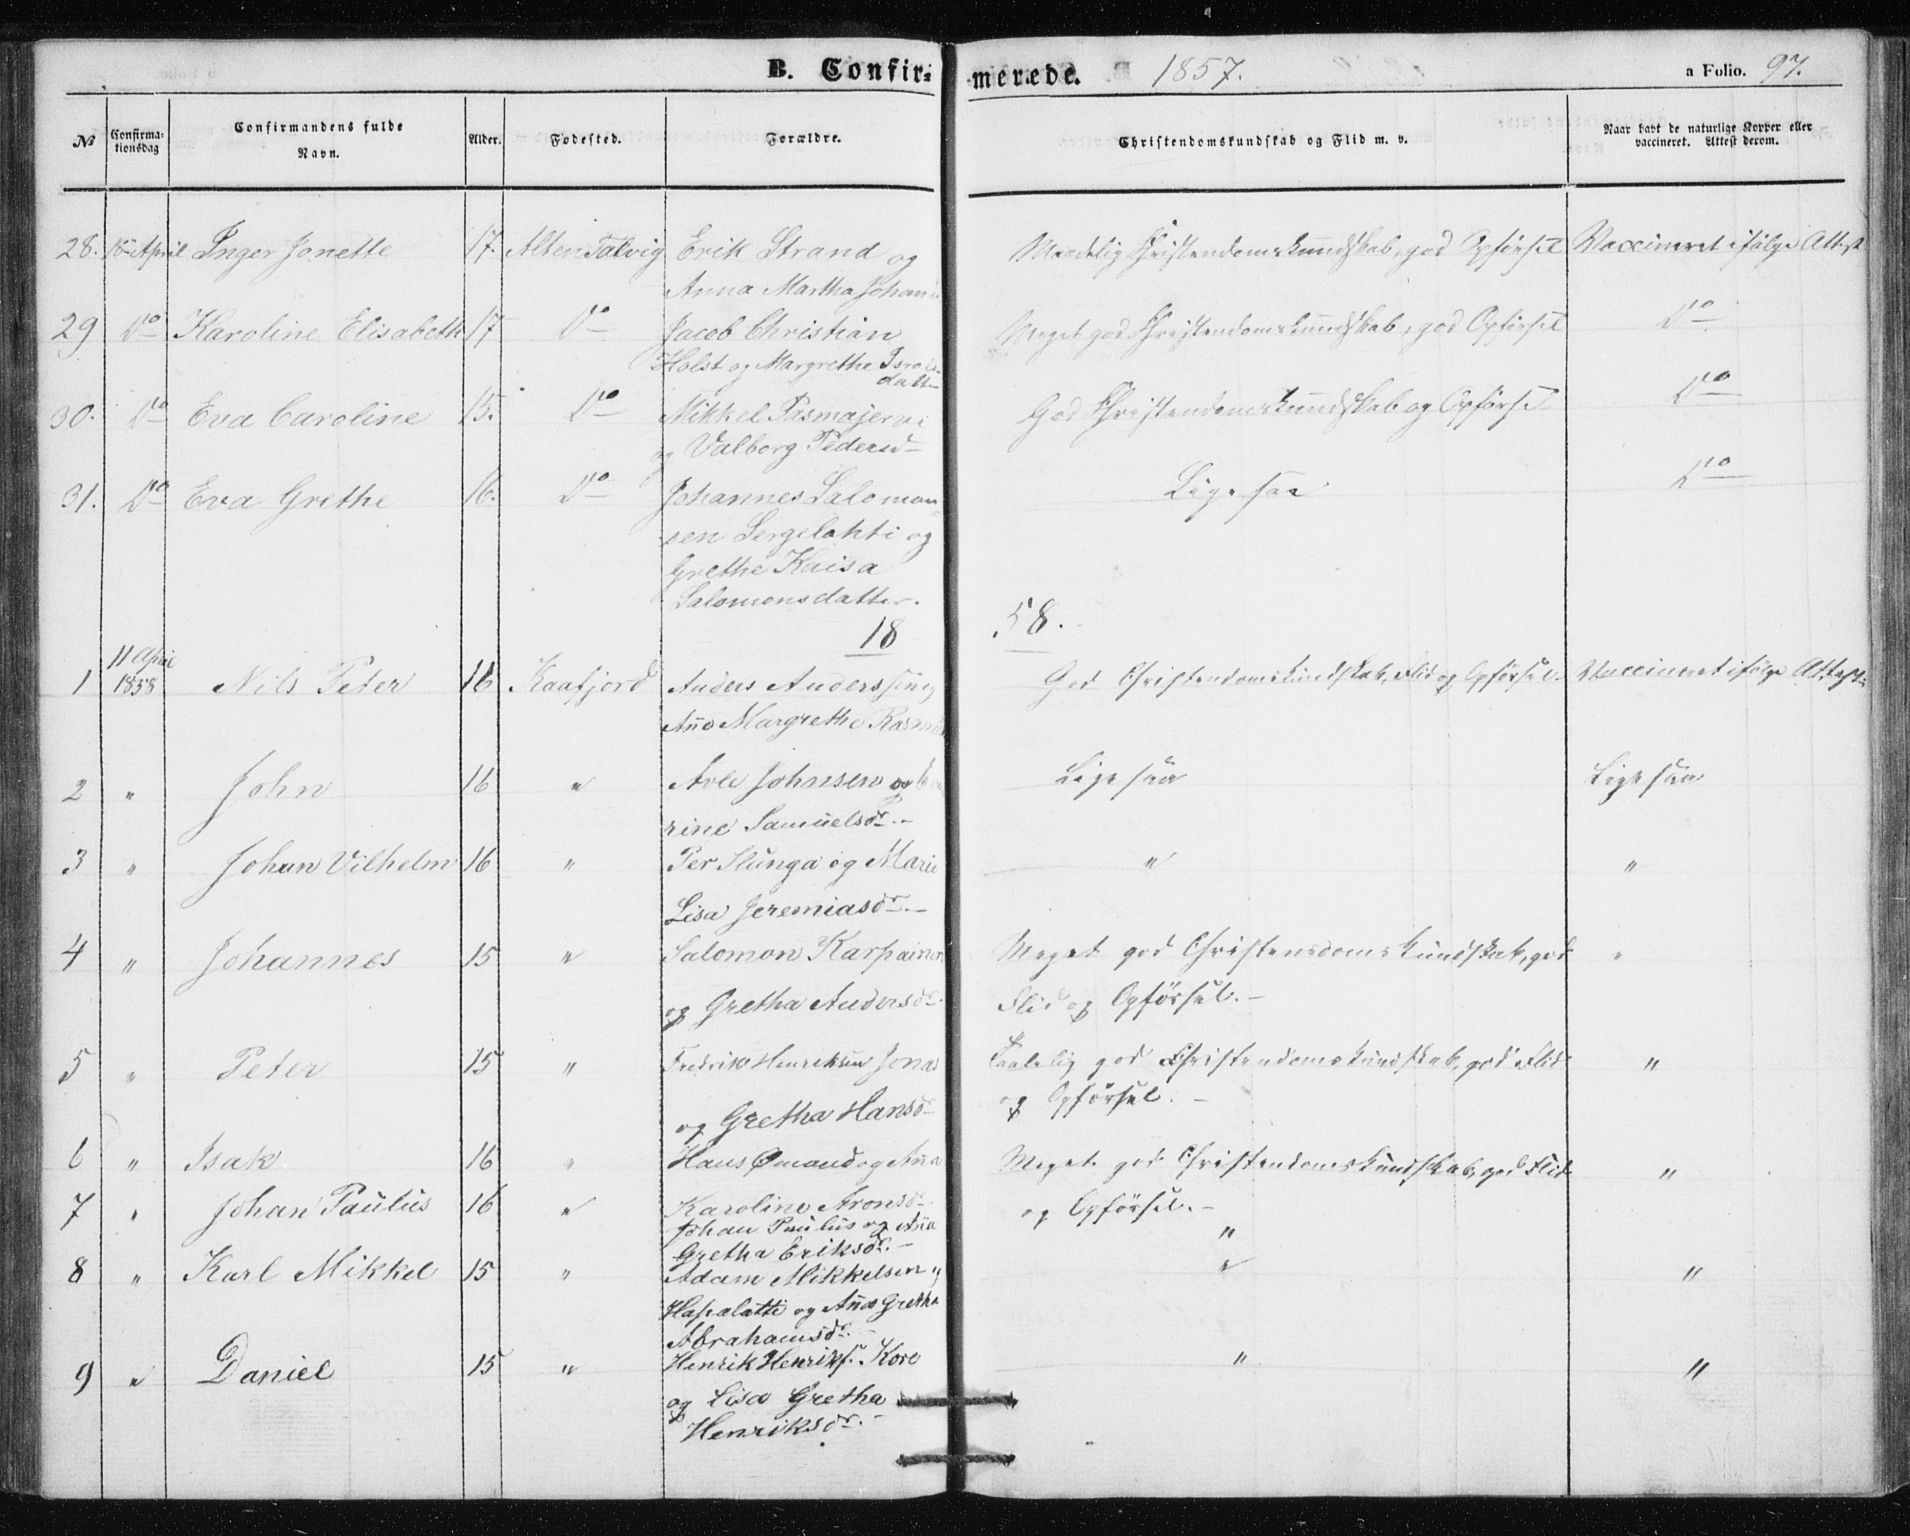 B. Confir- merede. 1857. a Folio. 97.
No Confirma-tionsdag Confirmandens fulde Navn. Alder. Fødested. Forældre. Christendomskundskab og Flid m. v. Naar havt de naturlige Kopper eller vaccineret. Attest derom.
28. April Inger Jonette 17. Alten Talvig Erik Strand og Maadelig Christendomskundskab, god Opførsel Vaccineret ifølge Attest
Anna Martha Johan
29 Do Karoline Elisabeth 17 Do Jacob Christian Meget god Christendomskundskab, god Opførsel Do
Holst og Margrethe Israels-
datter
30. Do Eva Caroline 15. Do Mikkel Pasmajervi God Christendomskundskab og Opførsel Do
og Valborg Pedersd
31. Do Eva Grethe 16. Do Johannes Salomon- Ligesaa Do
sen Sergelahti og
Grethe Kaisa
Salomonsdatter.
18 58.
1 11 April 1858 Nils Peter 16 Kaafjord Anders Anderssen og God Christendomskundskab, Flid og Opførsel. Vaccineret ifølge Attest.
Ane Margrethe Rasm
2 " John 16 " Arle Johnsen og Ligesaa Ligesaa
rine Samuelsdr.-
3 " Johan Vilhelm 16 " Per Slunga og Marie " "
Lisa Jeremiasdr.-
4 " Johannes 15 " Salomon Karpainen Meget god Christensdomskundskab, god "
og Gretha Andersdr Flid og Opførsel.-
5 " Peter 15 " Fredrik Henriksen Jonas Taalelig god Christendomskundskab, god Flid "
og Gretha Hansdr og Opførsel.-
6 " Isak 16 " Hans Ømand og Ana Meget god Christendomskundskab, god Flid "
Karoline Aronsdr og Opførsel.-
7 " Johan Paulus 16 " Johan Paulus og Ana "
Gretha Eriksdr.-
8 " Karl Mikkel 15 " Adam Mikkelsen " "
Hapalatti og Ana Gretha
Abrahamsdr.-
9 " Daniel 15 " Henrik Henriks. Kore " "
og Lisa Gretha
Henriksdr.-